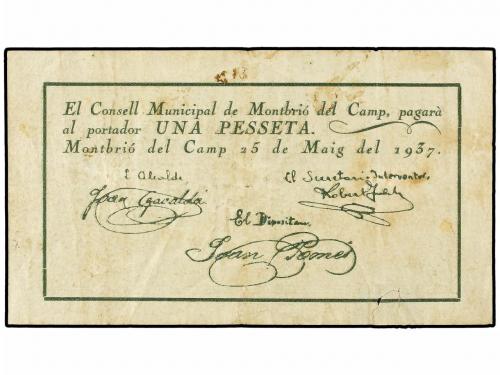 El Consell Municipal de Montbrió del Camp, pagarà
al portador UNA PESSETA.
Montbrió del Camp 25 de Maig del 1937.
L'Alcalde
El Secretari-Interventor
Joan Gavaldà
Robert
El Dipositari
Joan Romeu